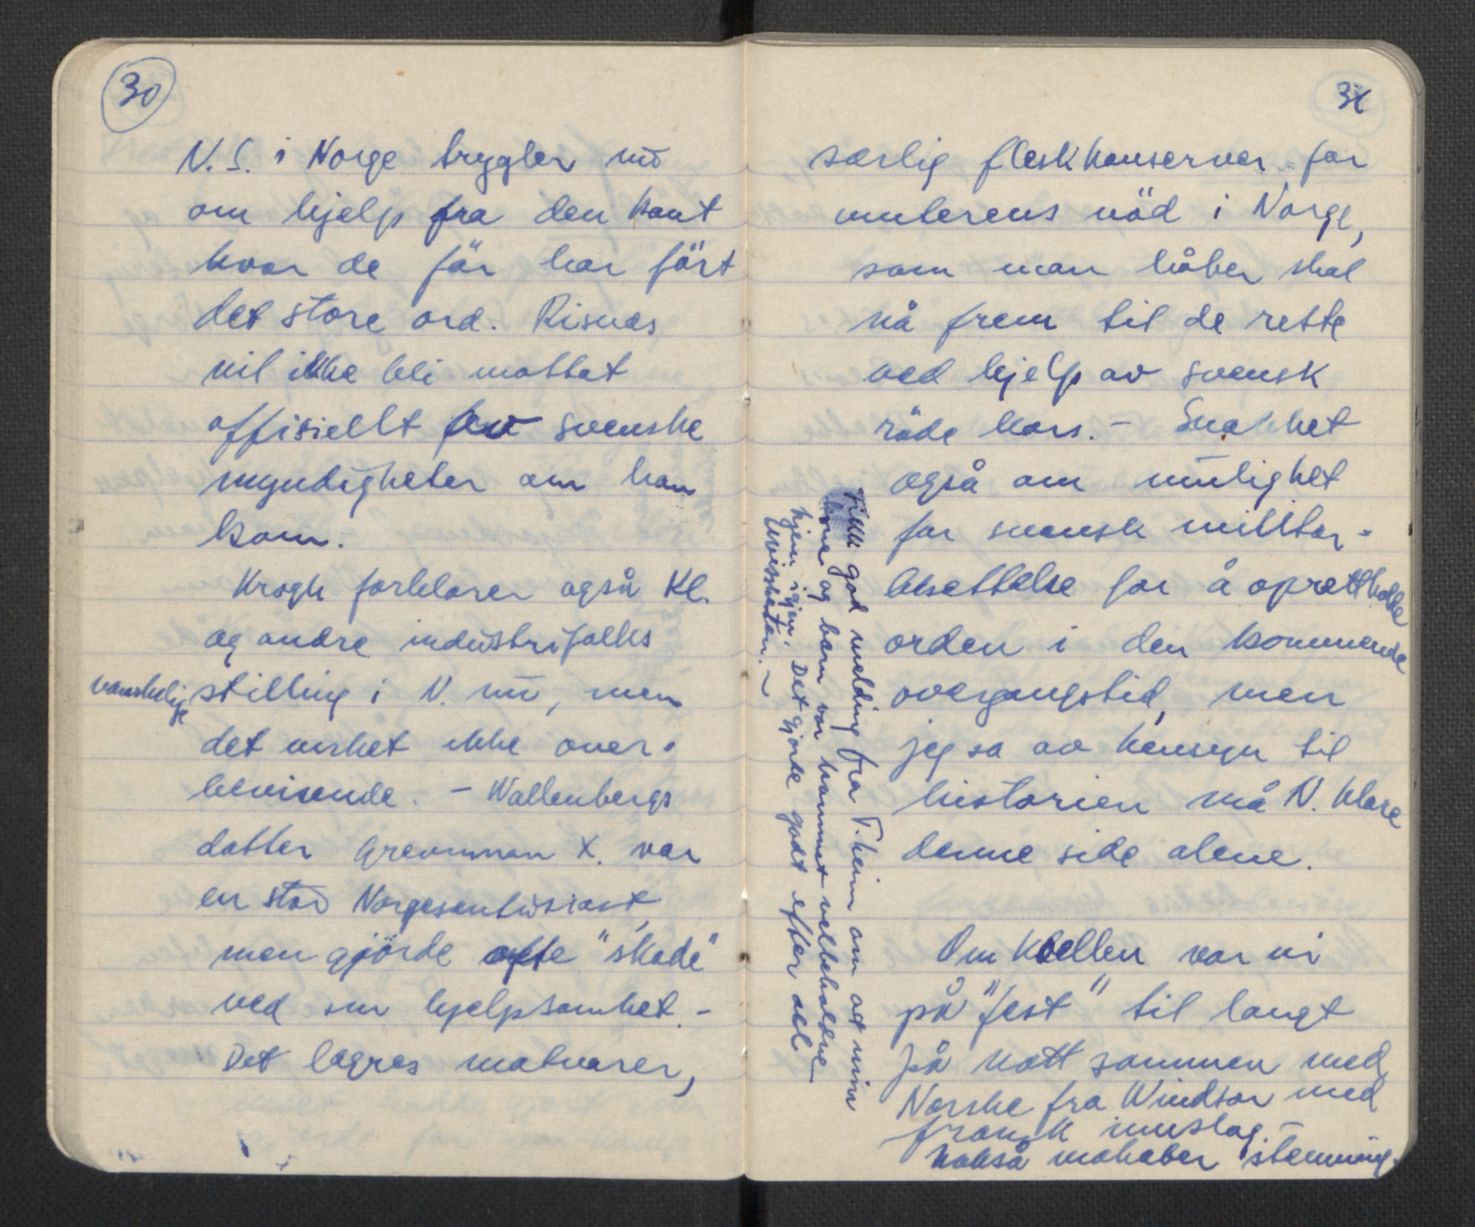 30
N.S. i Norge trygler nu
om hjelp fra den kant
hvor de før har ført
det store ord. Risnæs
vil ikke bli mottat
offisiellt av svenske
myndigheter om han
kom.
Krogh forklarer også Kl.
og andre industrifolks
vanskelige stilling i N. nu, men
det virket ikke over-
bevisende. – Wallenbergs
datter Grevinnan X. var
en stor Norgesentusiast,
men gjörde ofte "skade"
ved sin hjelpsomhet. –
Det lagres matvarer,
31
særlig fleskkonserver for
vinterens nöd i Norge,
som man håber skal
nå frem til de rette
ved hjelp av svensk
röde kors. – Snakket
også om mulighet
for svensk militær-
besettelse for å oprettholde
orden i den kommende
overgangstid, men
jeg sa av hensyn til
historien må N. klare
denne side alene.
Om kvellen var vi
på "fest" til langt
på natt sammen med
Norske fra Windsor med
fransk innslag. –
Nokså makaber stemning.
Fikk god melding fra T.heim om at min
kone og barn var kommet velbeholdne
hjem igjen. Det gjorde godt efter all
uvissheten. –